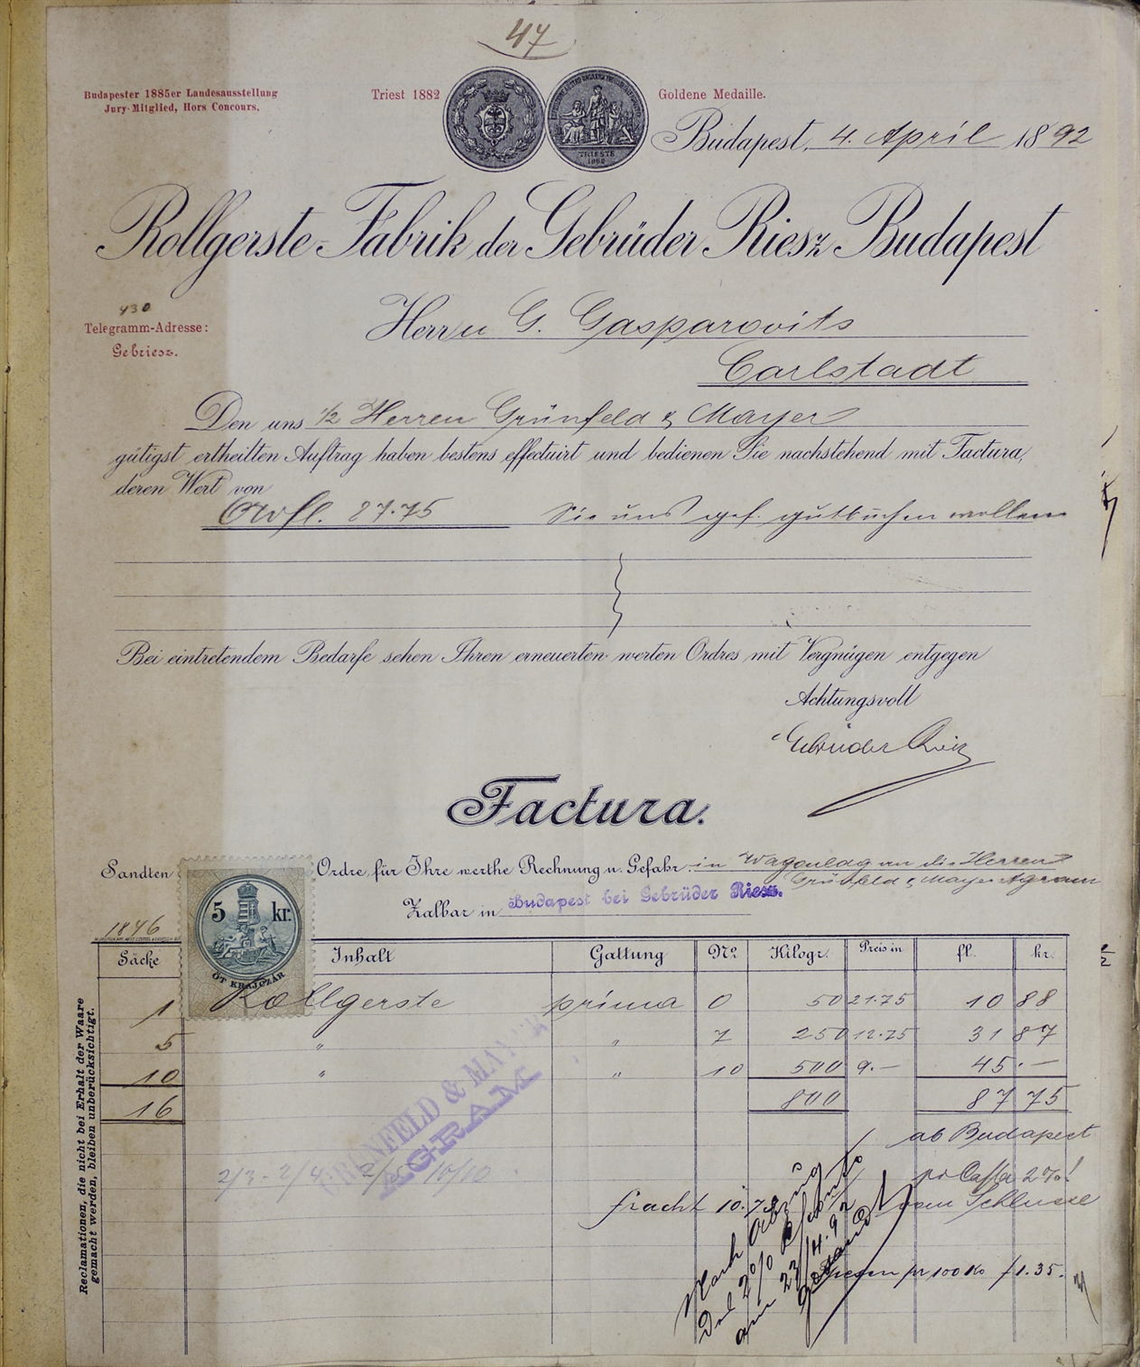 47
Budapester 1885er Landesausstellung
Jury-Mitglied, Hors Concours.
Triest 1882
Goldene Medaille.
TRIESTE
1882
Budapest, 4. April 1892
Rollgerste-Fabrik der Gebrüder Riesz Budapest
430
Telegramm-Adresse:
Gebriesz.
Herrn G. Gasparovits
Carlstadt
Den uns 1/2 Herren Grünfeld & Mayer
gütigst ertheilten Auftrag haben bestens effectuirt und bedienen Sie nachstehend mit Factura,
deren Wert von
Öwfl. 87.75 Sie uns gef. gutbuchen wollen
Bei eintretendem Bedarfe sehen Ihren erneuerten werten Ordres mit Vergnügen entgegen
Achtungsvoll
Gebrüder Riesz
Factura.
Sandten Ordre für Ihre werthe Rechnung u. Gefahr in Wagenladg an die Herren
Grünfeld & Mayer Agram
Zalbar in Budapest bei Gebrüder Riesz.
1846
5 kr.
ÖT KRAJCZÁR
Säcke Inhalt Gattung No. Kilogr. Preis in fl. kr.
1 Rollgerste prima 0 50 21.75 10 88
5 " " 7 250 12.75 31 87
10 " " 10 500 9.— 45 .—
16 800 87 75
GRÜNFELD & MAYER
AGRAM
ab Budapest
pr Cassa 2%!
fracht 10.78 vom Schlusse
Nach Abzug
2% Sconto
am 23/4.92
gesandt
pr 100 Ko f 1.35.
Reclamationen, die nicht bei Erhalt der Waare
gemacht werden, bleiben unberücksichtigt.